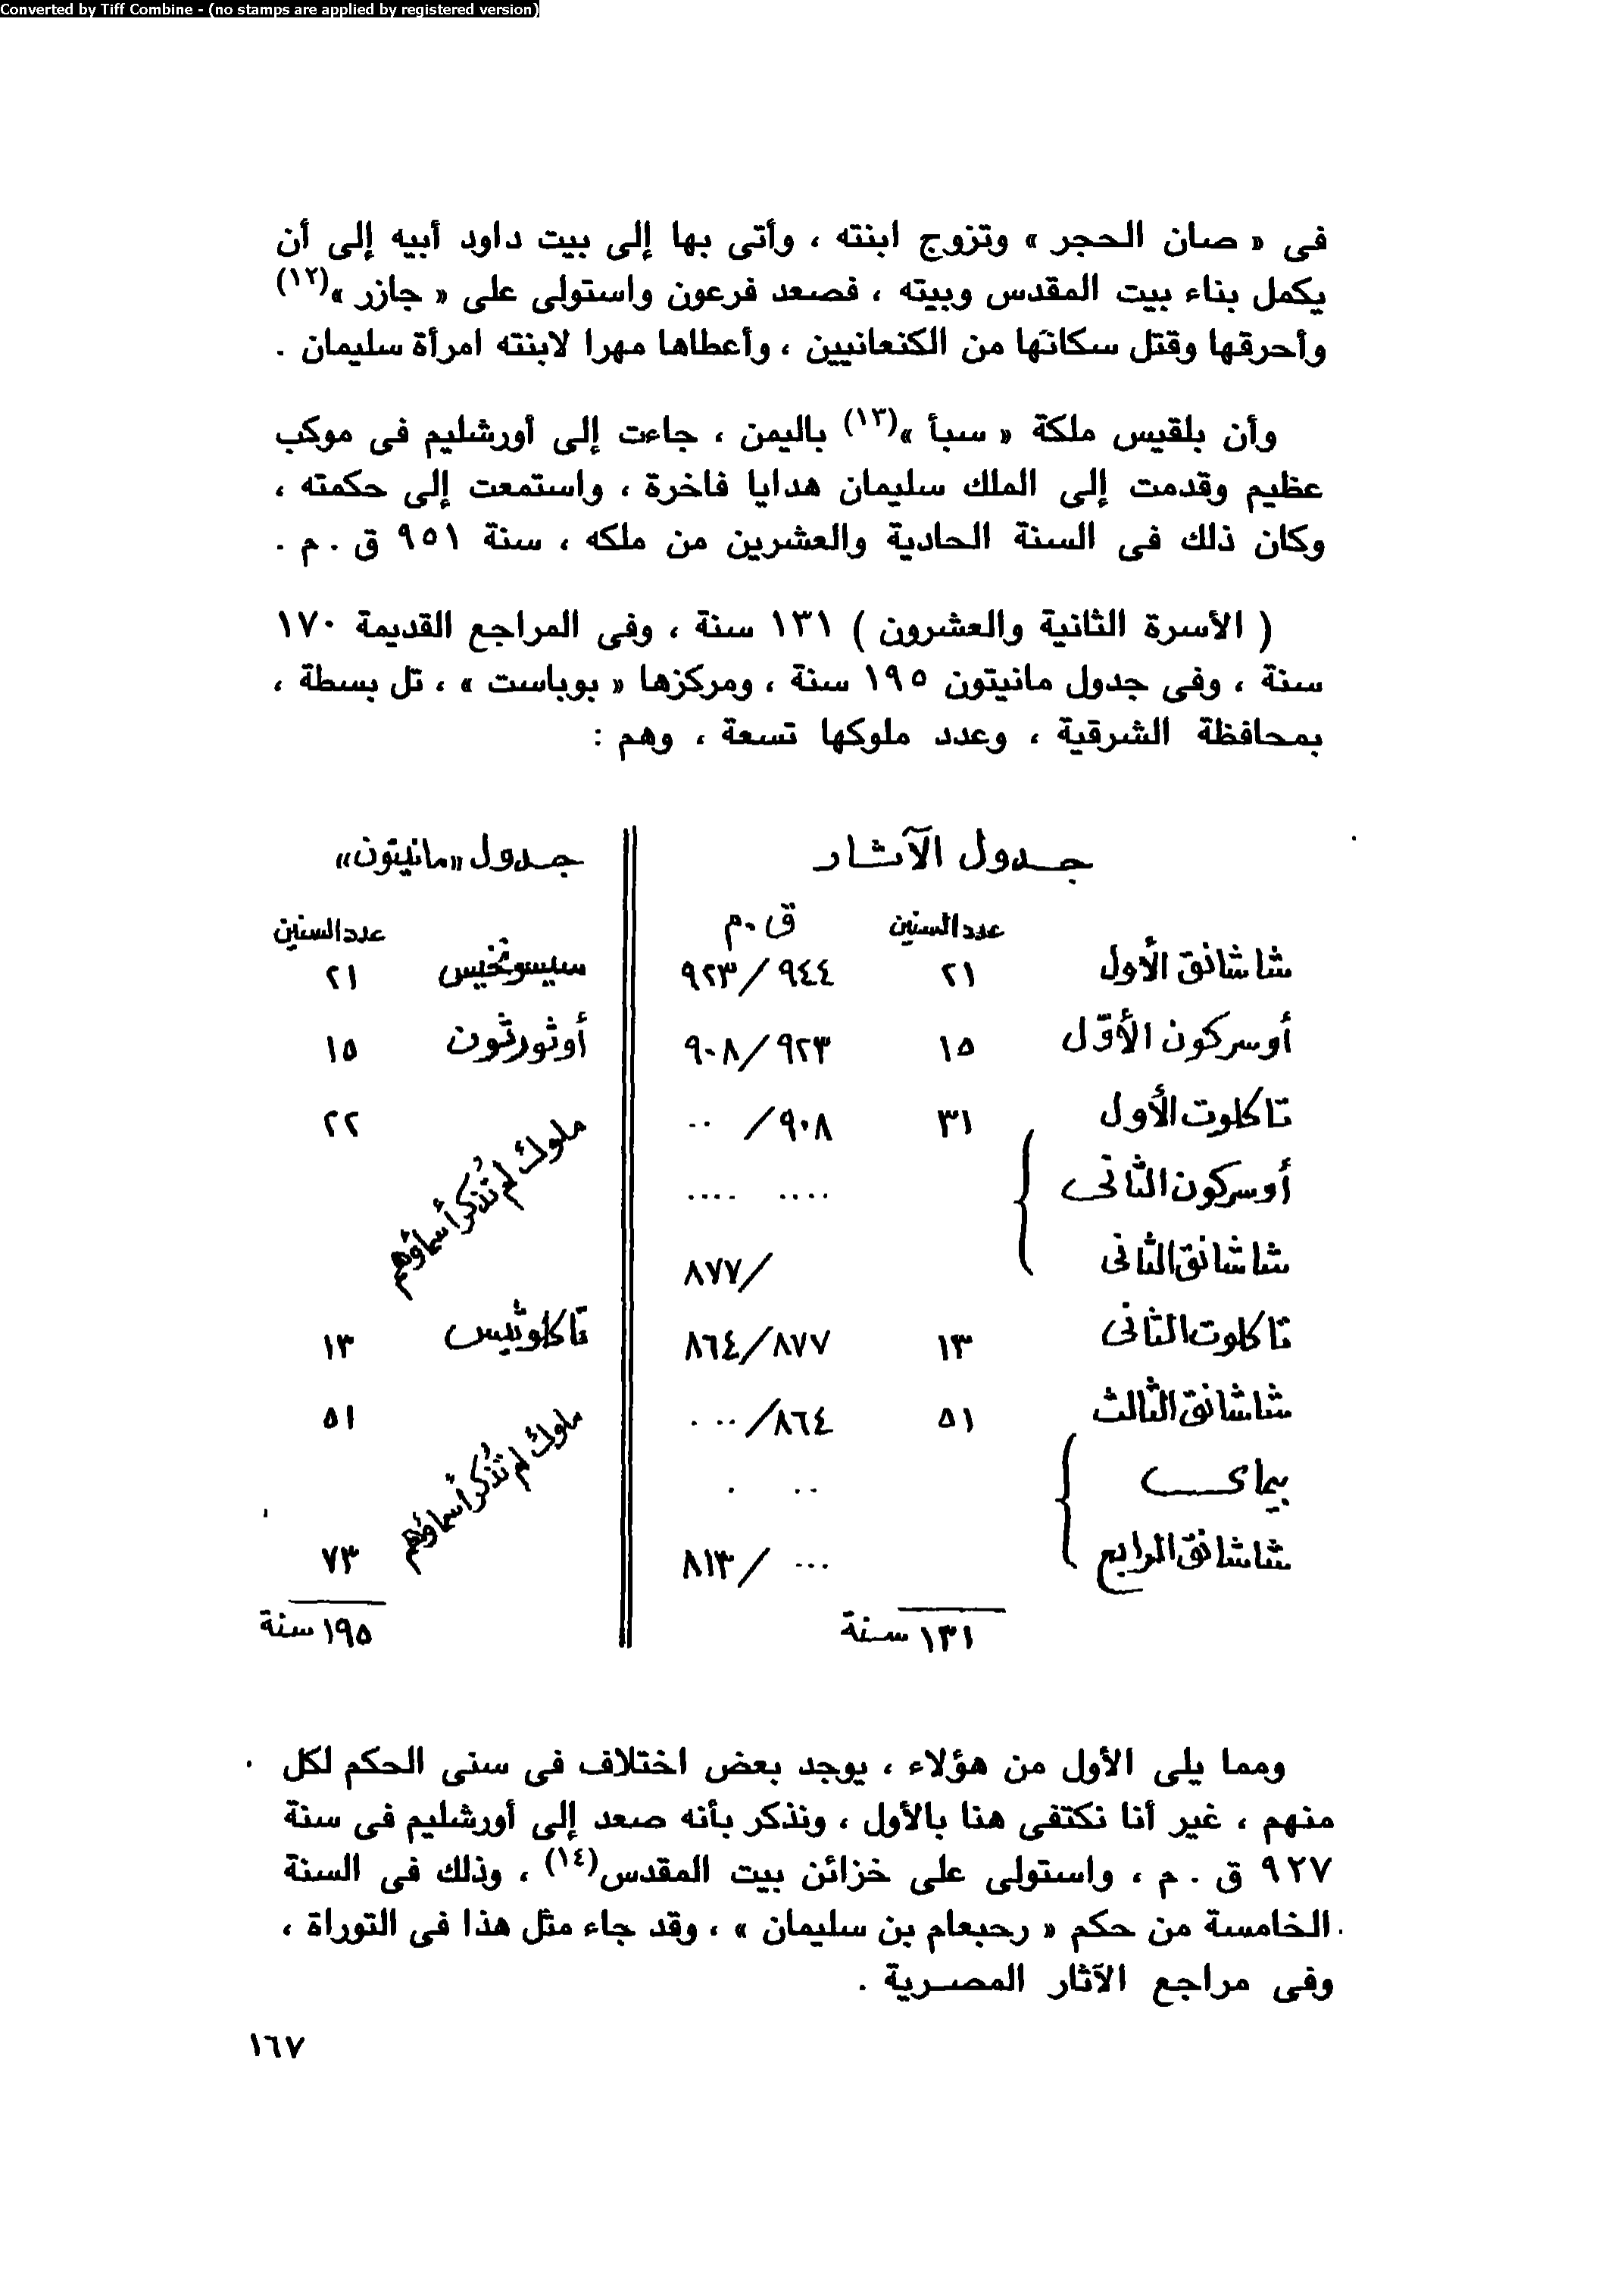 Converted by Tiff Combine - (no stamps are applied by registered version)
فى « صان الحجر » وتزوج ابنته ، وأتى بها إلى بيت داود أبيه إلى أن
يكمل بناء بيت المقدس وبيته ، فصعد فرعون واستولى على « جازر »(١٢)
وأحرقها وقتل سكانها من الكنعانيين ، وأعطاها مهرا لابنته امرأة سليمان .
وأن بلقيس ملكة « سبأ »(١٣) باليمن ، جاءت إلى أورشليم فى موكب
عظيم وقدمت إلى الملك سليمان هدايا فاخرة ، واستمعت إلى حكمته ،
وكان ذلك فى السنة الحادية والعشرين من ملكه ، سنة ٩٥١ ق . م .
( الأسرة الثانية والعشرون ) ١٣١ سنة ، وفى المراجع القديمة ١٧٠
سنة ، وفى جدول مانيتون ١٩٥ سنة ، ومركزها « بوباست » ، تل بسطة ،
بمحافظة الشرقية ، وعدد ملوكها تسعة ، وهم :
جدول الآثار جدول «مانيتون»
عدد السنين ق.م عدد السنين
شاشانق الأول ٢١ ٩٤٤/٩٢٣ سيسونخيس ٢١
أوسركون الأوّل ١٥ ٩٢٣/٩٠٨ أوثورثون ١٥
تاكلوت الأول ٣١ ٩٠٨/ ٠٠ ملوك لم تُذكر أسماؤهم ٢٢
أوسركون الثانى .... ....
شاشانق الثانى /٨٧٧
تاكلوت الثانى ١٣ ٨٧٧/٨٦٤ تاكلوثيس ١٣
شاشانق الثالث ٥١ ٨٦٤/... ملوك لم تُذكر أسماؤهم ٥١
بيماى .. .
شاشانق الرابع ... /٨١٣ ٧٣
١٣١ سنة ١٩٥ سنة
ومما يلى الأول من هؤلاء ، يوجد بعض اختلاف فى سنى الحكم لكل
منهم ، غير أنا نكتفى هنا بالأول ، ونذكر بأنه صعد إلى أورشليم فى سنة
٩٢٧ ق . م ، واستولى على خزائن بيت المقدس(١٤) ، وذلك فى السنة
الخامسة من حكم « رحبعام بن سليمان » ، وقد جاء مثل هذا فى التوراة ،
وفى مراجع الآثار المصرية .
١٦٧